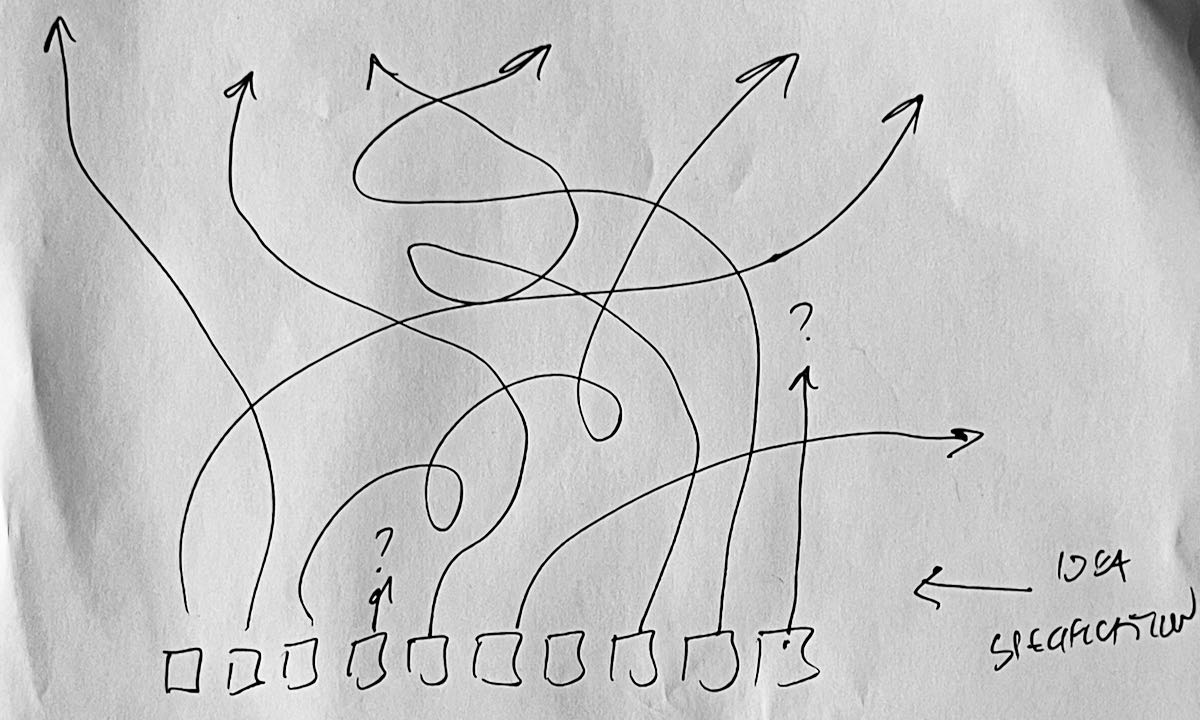 ?
?
IDEA
SPECIFICATION